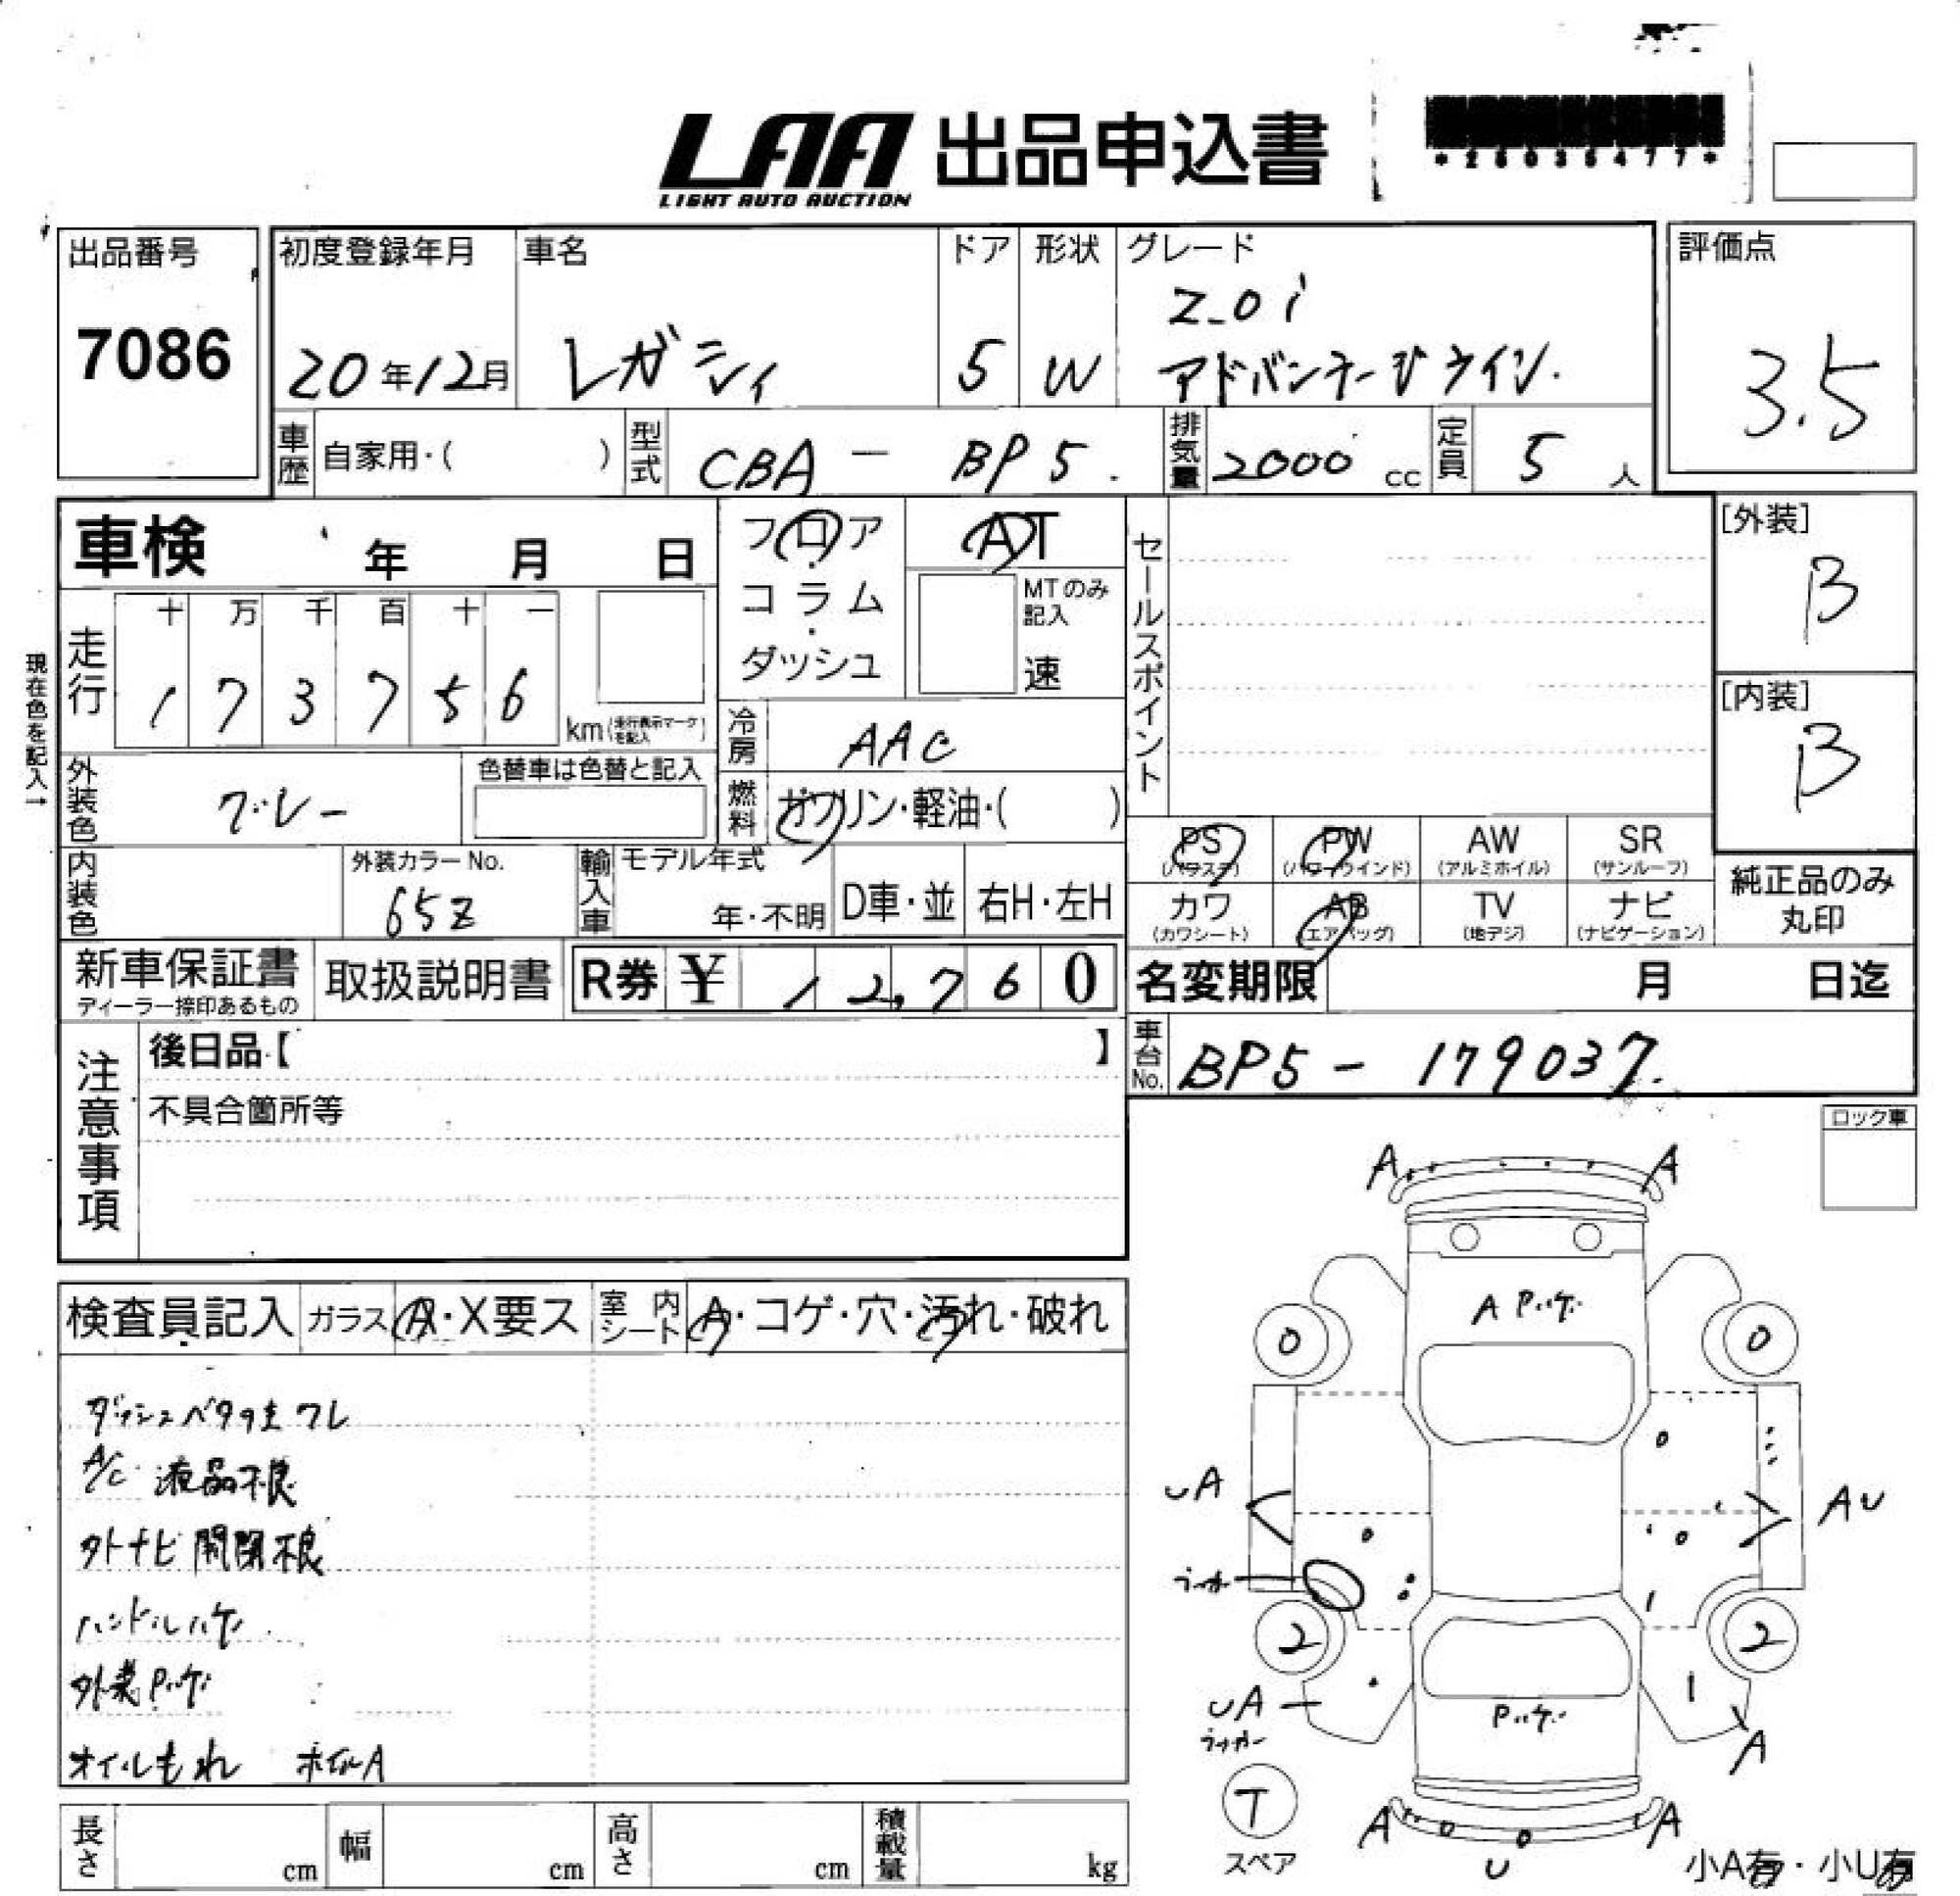 LAA 出品申込書
LIGHT AUTO AUCTION
*26035477*
出品番号
7086
初度登録年月
20年12月
車名
レガシィ
ドア
5
形状
W
グレード
2.0i
アドバンテージライン.
評価点
3.5
車歴
自家用・(　　)
型式
CBA - BP5.
排気量
2000 cc
定員
5 人
車検　年　月　日
フロア・コラム・ダッシュ
AT
MTのみ記入
速
セールスポイント
[外装]
B
[内装]
B
現在色を記入→
走行
十 万 千 百 十 一
1 7 3 7 5 6
km(走行表示マークを記入)
冷房
AAC
燃料
ガソリン・軽油・(　　)
外装色
グレー
色替車は色替と記入
内装色
外装カラーNo.
65Z
輸入車
モデル年式
年・不明
D車・並
右H・左H
PS (パワステ)
PW (パワーウインド)
AW (アルミホイル)
SR (サンルーフ)
カワ (カワシート)
AB (エアバッグ)
TV (地デジ)
ナビ (ナビゲーション)
純正品のみ丸印
新車保証書
ディーラー捺印あるもの
取扱説明書
R券 ¥ 12,760
名変期限　月　日迄
車台No.
BP5 - 179037.
注意事項
後日品【　　】
不具合箇所等
ロック車
検査員記入
ガラス
A・X要ス
室内シート
A・コゲ・穴・汚れ・破れ
ダッシュベタつきワレ
A/C 液晶不良
外ナビ開閉不良
ハンドルハゲ
外装Pハゲ
オイルもれ　ホイルA
A　A
A Pハゲ
0　0
UA
AU
2　2
UA
Pハゲ
A
T
スペア
A　A
U
小A有・小U有
長さ　cm
幅　cm
高さ　cm
積載量　kg